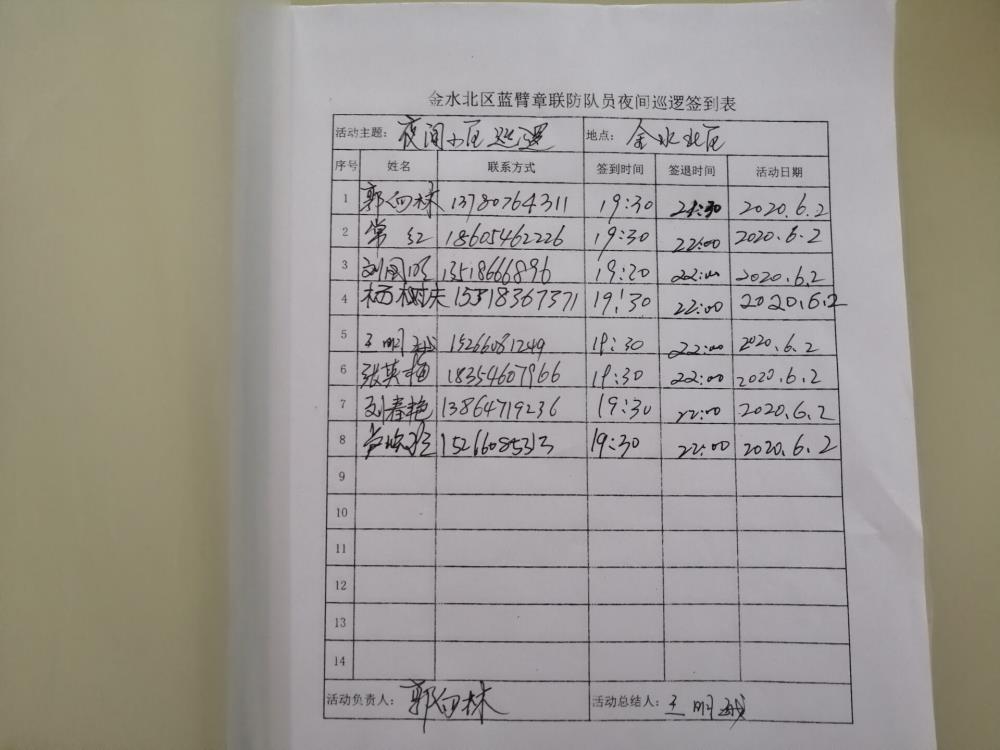 金水北区蓝臂章联防队员夜间巡逻签到表
活动主题: 夜间小区巡逻 地点: 金水北区
序号 姓名 联系方式 签到时间 签退时间 活动日期
1 郭向林 13780764311 19:30 21:30 2020.6.2
2 常红 18605462226 19:30 22:00 2020.6.2
3 刘国明 13518666896 19:20 22:00 2020.6.2
4 杨树庆 15318367371 19:30 22:00 2020.6.2
5 王明 15266081249 19:30 22:00 2020.6.2
6 张英梅 18354607966 19:30 22:00 2020.6.2
7 刘春艳 13864719236 19:30 22:00 2020.6.2
8 15266085313 19:30 22:00 2020.6.2
9
10
11
12
13
14
活动负责人: 郭向林 活动总结人: 王明